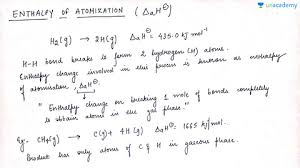 unacademy
ENTHALPY OF ATOMIZATION (ΔaH⊖)
H2(g) → 2H(g) ΔaH⊖ = 435.0 kJ mol-1
H-H bond breaks to form 2 hydrogen (H) atoms.
Enthalpy change involved in this process is known as enthalpy
of atomization, ΔaH⊖
"Enthalpy change on breaking 1 mole of bonds completely
to obtain atoms in the gas phase."
Eg:- CH4(g) → C(g) + 4H(g) ΔaH⊖ = 1665 kJ/mol.
Product has only atoms of C & H in gaseous phase.